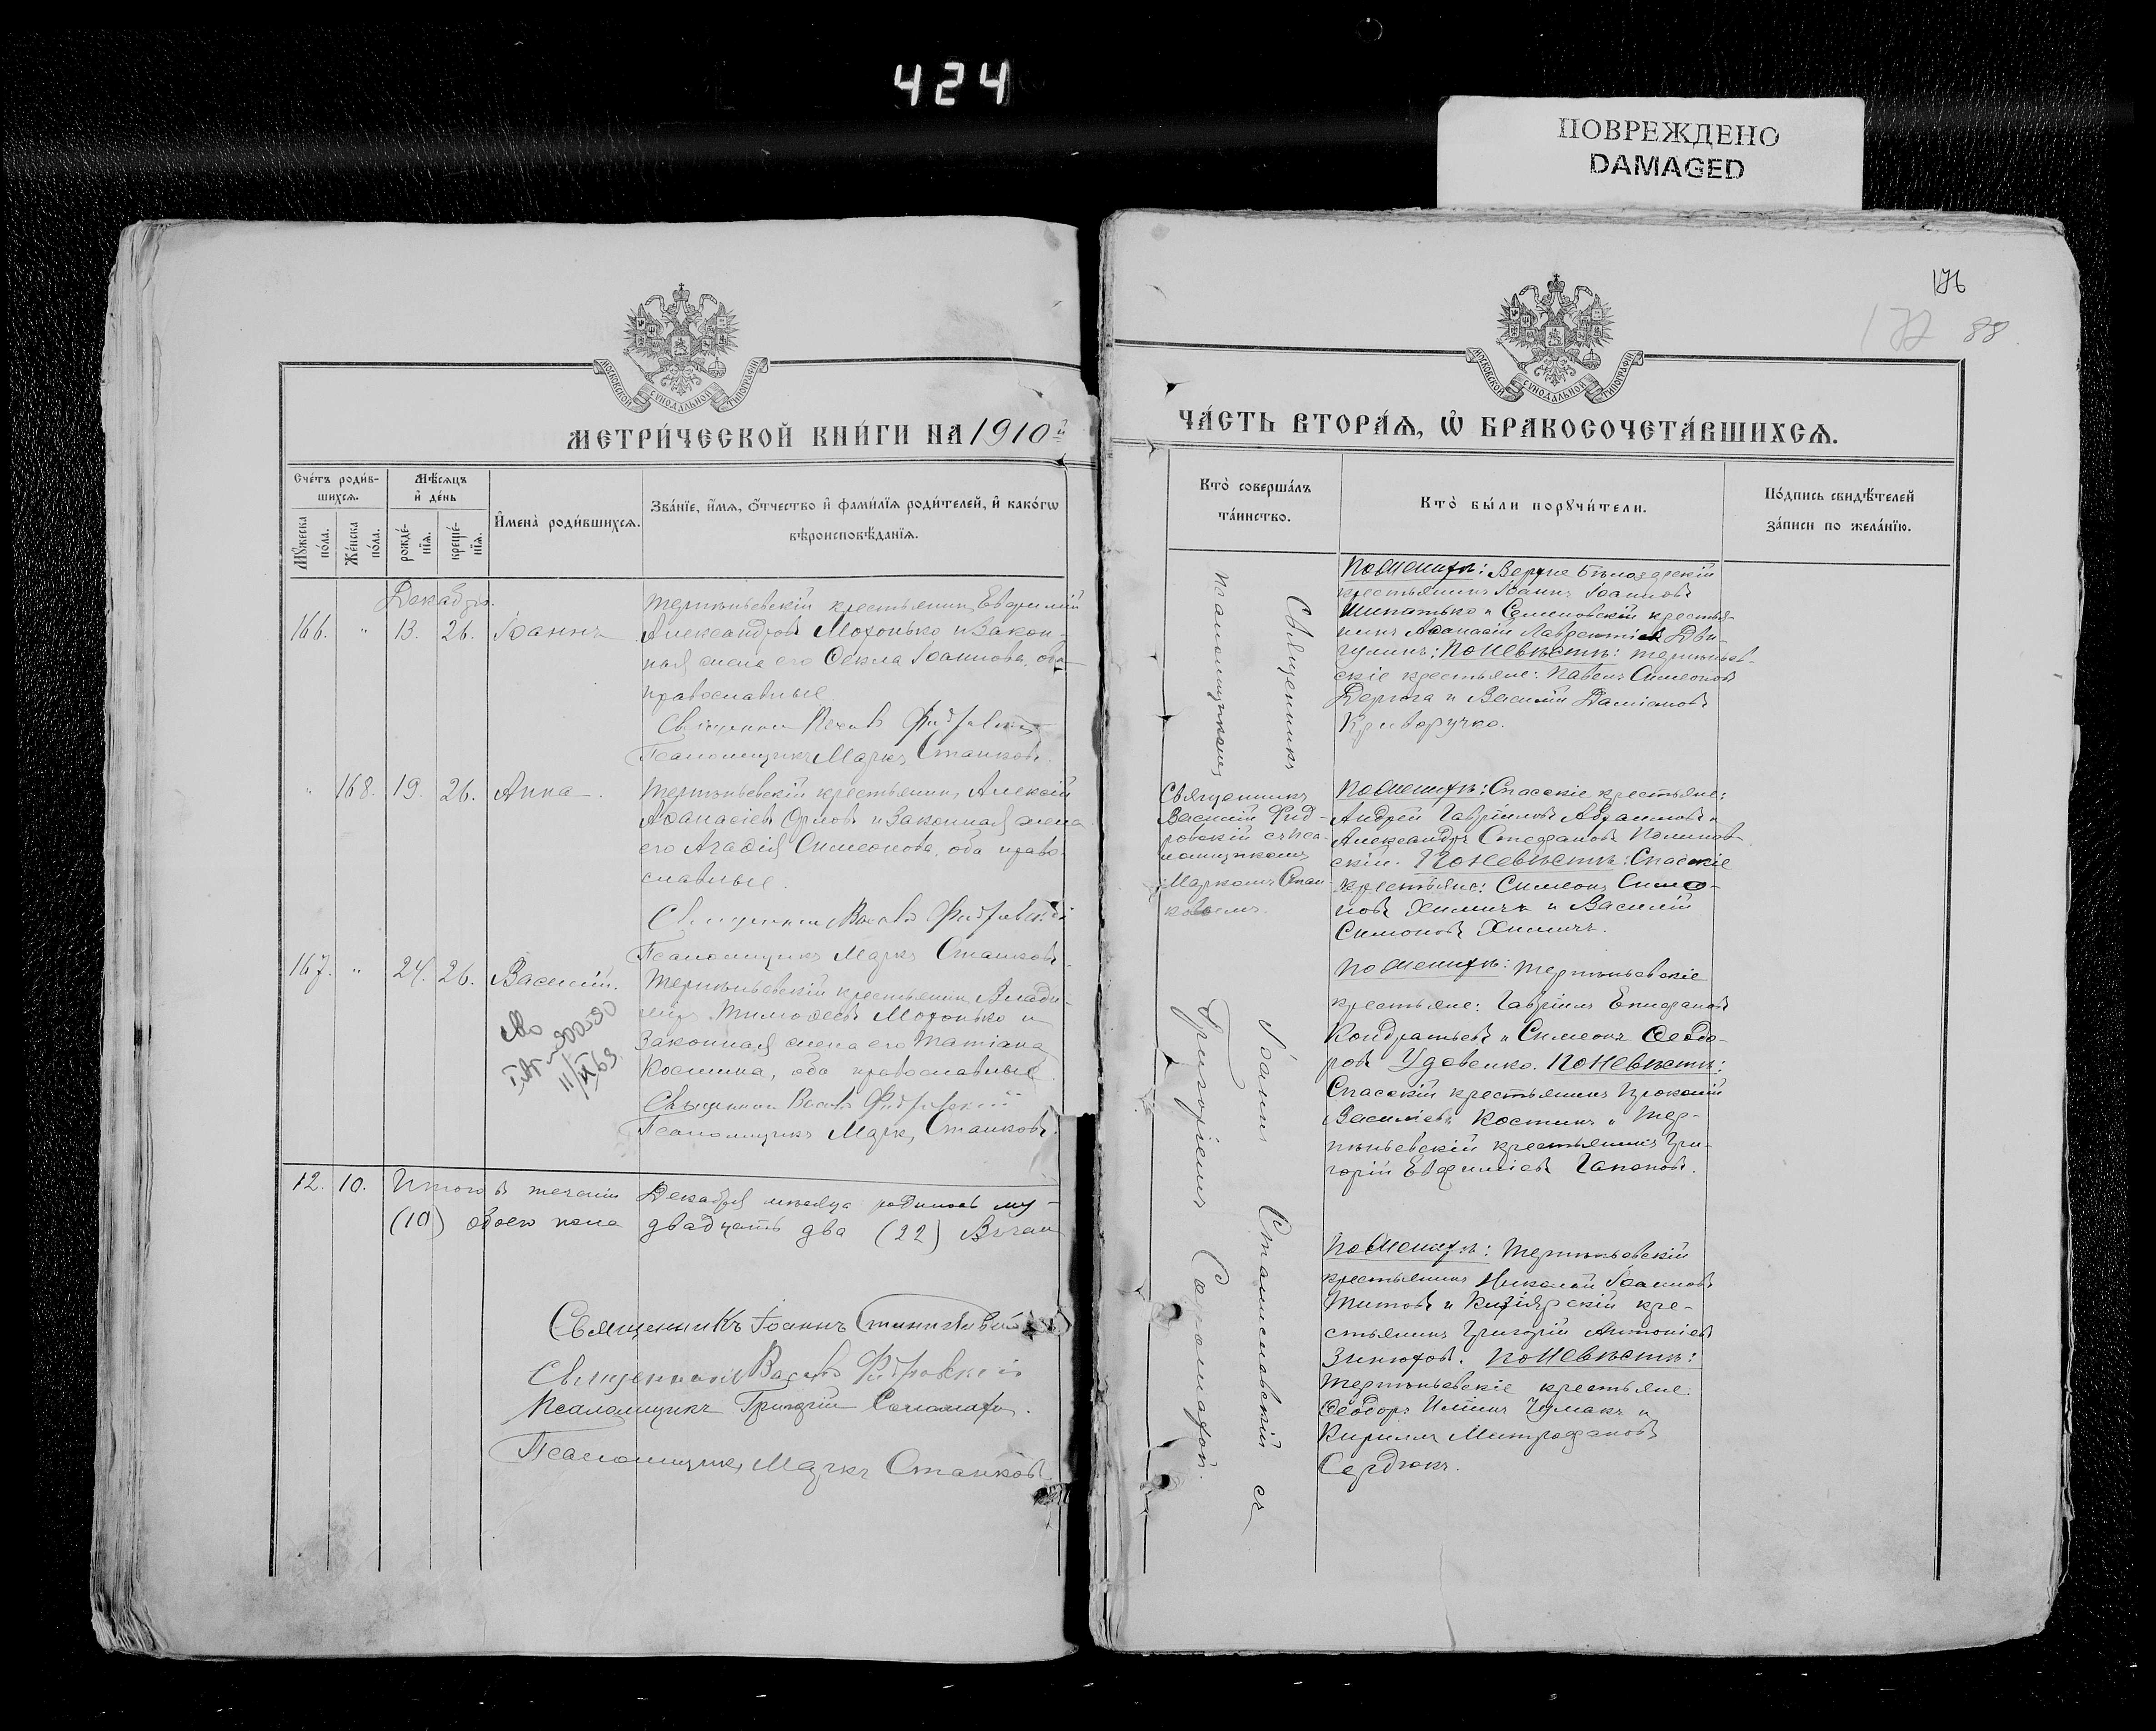 424
ПОВРЕЖДЕНО
DAMAGED
МОСКОВСКОЙ СѴНОДАЛЬНОЙ ТИПОГРАФІИ
МЕТРИ́ЧЕСКОЙ КНИ́ГИ НА 1910й
Сче́тъ роди́в-
шихсѧ.
Мѣ́сѧцъ
и҆ де́нь
Мꙋ́жеска
по́ла.
Же́нска
по́ла.
рожде́-
нїѧ.
креще́-
нїѧ.
И҆мена̀ роди́вшихсѧ.
Зва́нїе, и҆́мѧ, ѻ҆́тчество и҆ фами́лїѧ роди́телей, и҆ како́гѡ
вѣроисповѣ́данїѧ.
Декабрь.
166. " 13. 26. Іоаннъ
Терпѣньевскій крестьянинъ Евфимій
Александровъ Мохонько и закон-
ная жена его Ѳекла Іоаннова, оба
православные
Священникъ Василій Фидровскій
Псаломщикъ Маркъ Станковъ.
" 168. 19. 26. Анна.
Терпѣньевскій крестьянинъ Алексій
Аѳанасіевъ Орловъ и законная жена
его Агаѳія Симеонова, оба право-
славные.
Священникъ Василій Фидровскій
Псаломщикъ Маркъ Станковъ.
167. " 24. 26. Василій.
Терпѣньевскій крестьянинъ Влади-
міръ Тимоѳеевъ Мохонько и
законная жена его Татіана
Космина, оба православные
Священникъ Василій Фидровскій
Псаломщикъ Маркъ Станковъ.
11/IX 63
12. 10. Итого в теченіи Декабря мѣсяца родилось му-
(10) обоего пола двадцать два (22) Всѣхъ
Священникъ Іоаннъ Станиславскій
Священникъ Василій Фидровскій
Псаломщикъ Григорій Соломаха.
Псаломщикъ Маркъ Станковъ
176
172 88
МОСКОВСКОЙ СѴНОДАЛЬНОЙ ТИПОГРАФІИ
ЧА́СТЬ ВТОРА́Ѧ, Ѡ҆ БРАКОСОЧЕТА́ВШИХСѦ.
Кто̀ соверша́лъ
та́инство.
Кто̀ бы́ли порꙋчи́тели.
По́дпись свидѣ́телей
за́писи по жела́нїю.
Священникъ Іоаннъ Станиславскій съ
псаломщикомъ Григоріемъ Соломахой.
По женихѣ: Верхне Бѣлозерскій
крестьянинъ Іоаннъ Іоанновъ
Шипатько и Семеновскій крестья-
нинъ Аѳанасій Лаврентіевъ Дви-
гулинъ: По невѣстѣ: терпѣньев-
скіе крестьяне: Павелъ Симеоновъ
Дерюга и Василій Даміановъ
Криворучко.
Священникъ
Василій Фид-
ровскій съ пса-
ломщикомъ
Маркомъ Стан-
ковымъ.
По женихѣ: Спасскіе крестьяне:
Андрей Гавріиловъ Авраимовъ и
Александръ Стефановъ Калинов-
скій. По невѣстѣ: Спасскіе
крестьяне: Симеонъ Симо-
новъ Химичъ и Василій
Симоновъ Химичъ.
По женихѣ: терпѣньевскіе
крестьяне: Гавріилъ Епифановъ
Кондратьевъ и Симеонъ Ѳеодо-
ровъ Удовенко. По невѣстѣ:
Спасскій крестьянинъ Прокопій
Василіевъ Костинъ и тер-
пѣньевскій крестьянинъ Гри-
горій Евфиміевъ Гапоновъ.
По женихѣ: терпѣньевскій
крестьянинъ Николай Іоанновъ
Титовъ и Кизіярскій кре-
стьянинъ Григорій Антоніевъ
Зинюховъ. По невѣстѣ:
Терпѣньевскіе крестьяне:
Ѳеодоръ Иліинъ Чумакъ и
Кириллъ Митрофановъ
Сердюкъ.